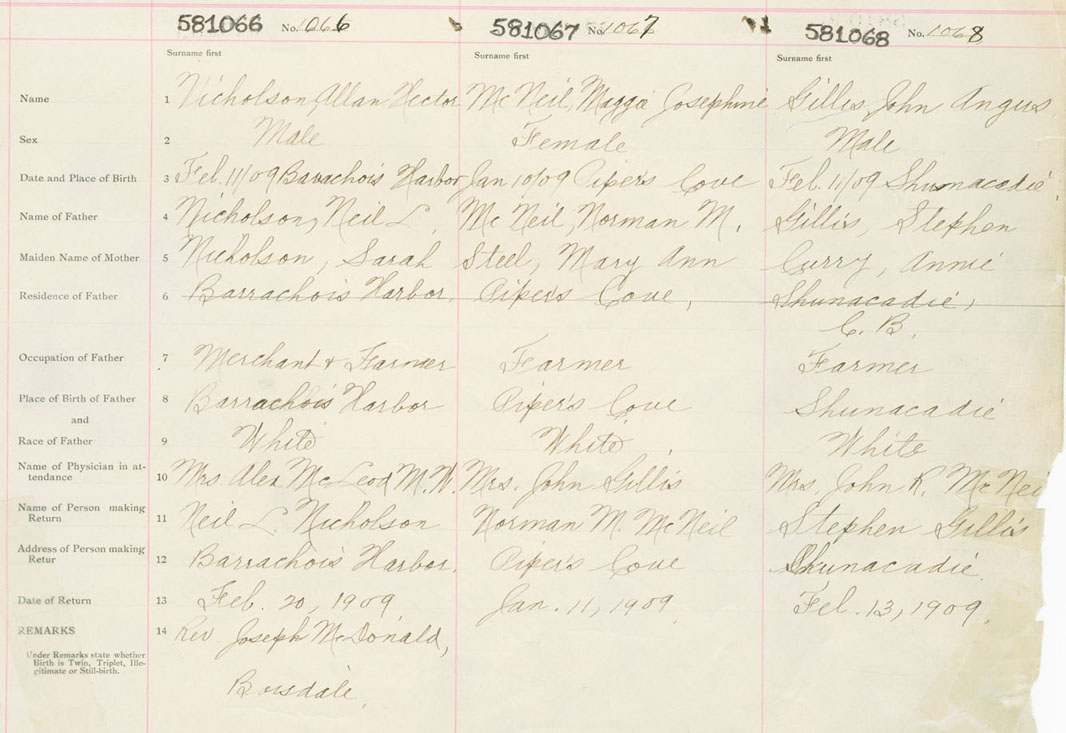 581066 No. 1066 581067 No. 1067 581068 No. 1068
Surname first Surname first Surname first
Name 1 Nicholson, Allan Hector McNeil, Maggie Josephine Gillis John Angus
Sex 2 Male Female Male
Date and Place of Birth 3 Feb. 11/09 Barachois Harbor Jan 10/09 Piper's Cove Feb. 11/09 Shunacadie
Name of Father 4 Nicholson, Neil L. McNeil, Norman M. Gillis, Stephen
Maiden Name of Mother 5 Nicholson, Sarah Steel, Mary Ann Curry, Annie
Residence of Father 6 Barrachois Harbor. Piper's Cove, Shunacadie,
C. B.
Occupation of Father 7 Merchant & Farmer Farmer Farmer
Place of Birth of Father 8 Barrachois Harbor Piper's Cove Shunacadie
and
Race of Father 9 White White White
Name of Physician in at-
tendance 10 Mrs Alex McLeod M.W. Mrs. John Gillis Mrs. John R. McNei
Name of Person making
Return 11 Neil L. Nicholson Norman M. McNeil Stephen Gillis
Address of Person making
Retur 12 Barrachois Harbor. Piper's Cove Shunacadie.
Date of Return 13 Feb. 20, 1909 Jan. 11, 1909 Feb. 13, 1909.
REMARKS 14 Rev. Joseph McDonald,
Under Remarks state whether
Birth is Twin, Triplet, Ille-
gitimate or Still-birth.
Boisdale.